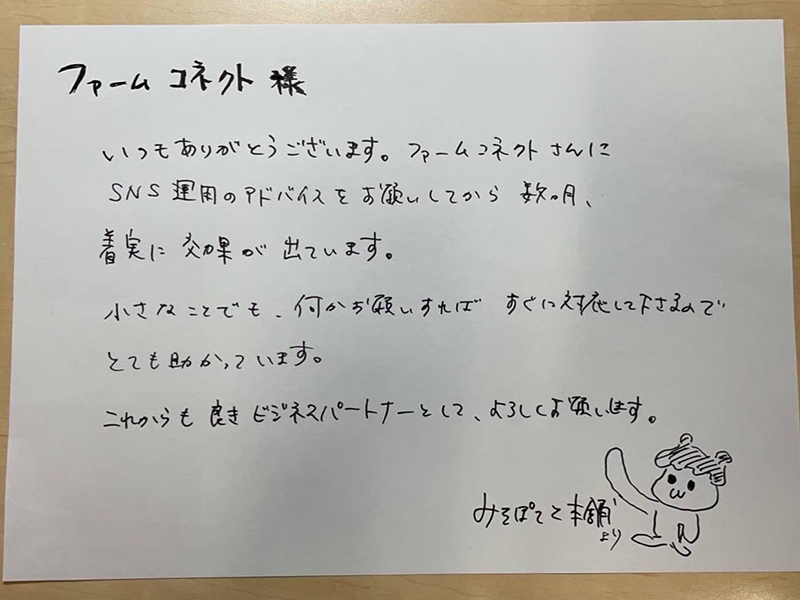 ファームコネクト様
いつもありがとうございます。ファームコネクトさんに
SNS運用のアドバイスをお願いしてから数ヶ月、
着実に効果が出ています。
小さなことでも、何かお願いすればすぐに対応して下さるので
とても助かっています。
これからも良きビジネスパートナーとして、よろしくお願いします。
みそぽてと本舗
より